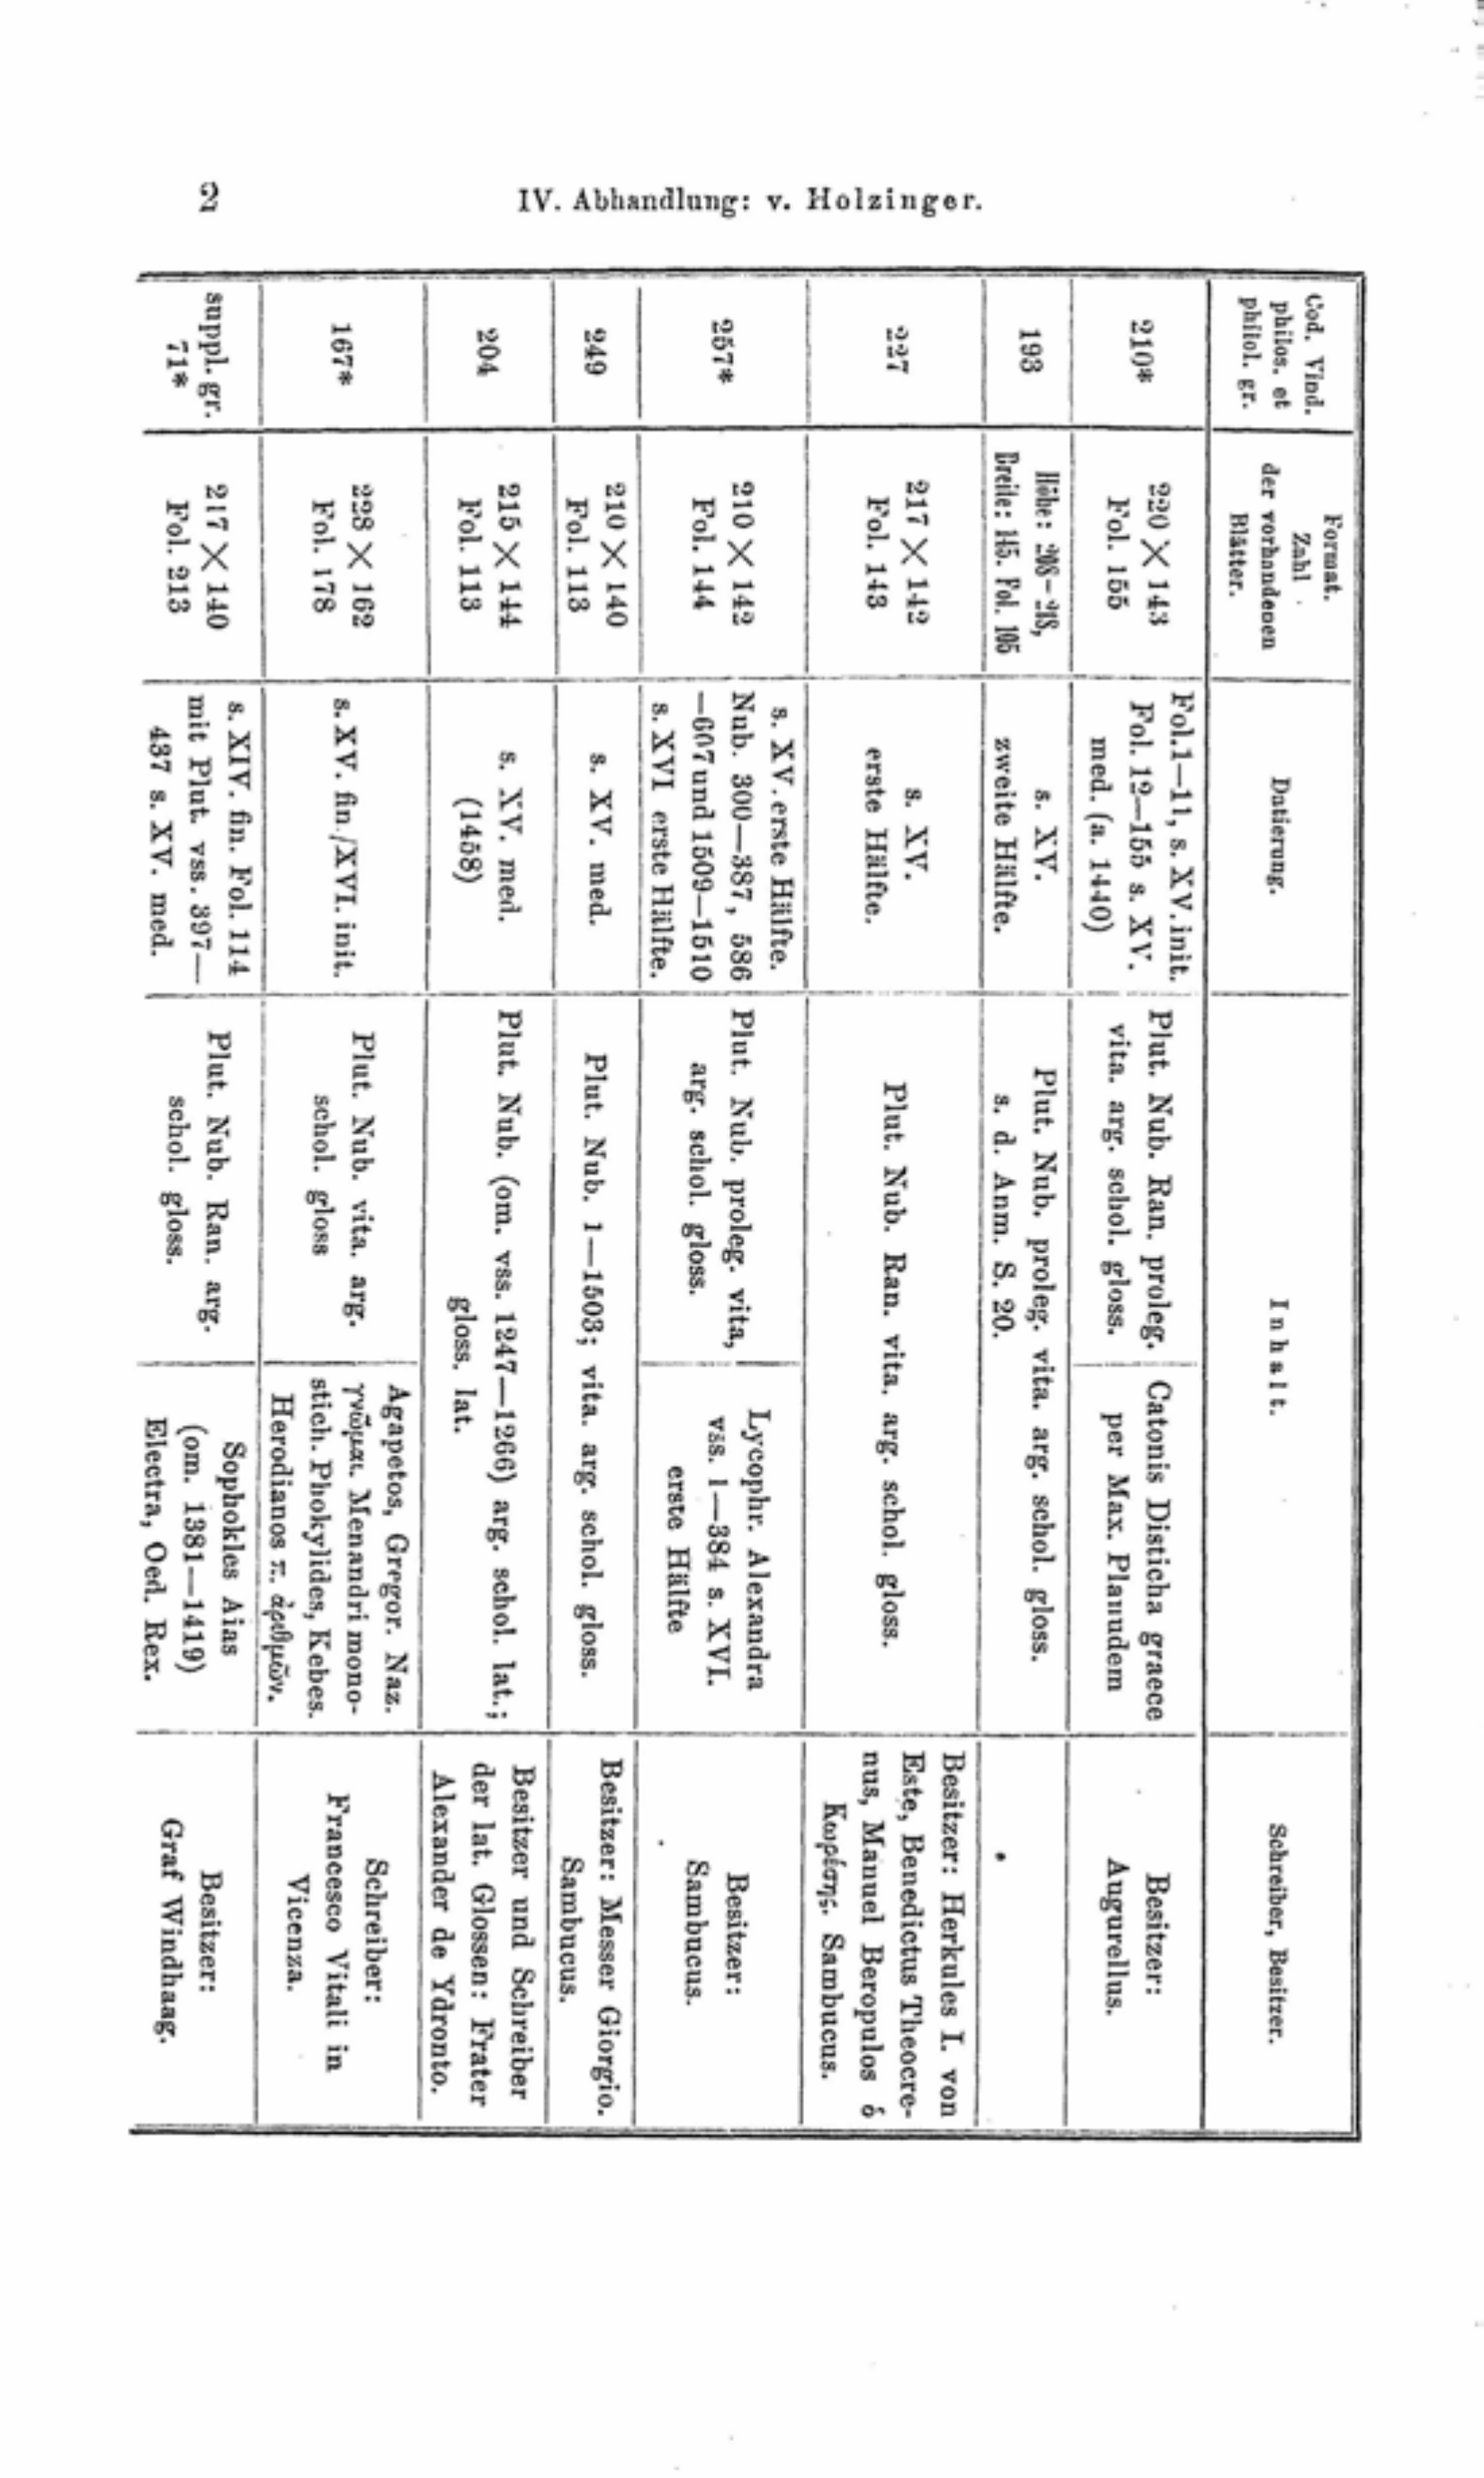 2
IV. Abhandlung: v. Holzinger.
Cod. Vind.
philos. et
philol. gr.
Format.
Zahl
der vorhandenen
Blätter.
Datierung.
Inhalt.
Schreiber, Besitzer.
210*
220 × 143
Fol. 155
Fol. 1—11, s. XV. init.
Fol. 12—155 s. XV.
med. (a. 1440)
Plut. Nub. Ran. proleg.
vita. arg. schol. gloss.
Catonis Disticha graece
per Max. Planudem
Besitzer:
Augurellus.
193
Höhe: 208—218,
Breite: 145. Fol. 105
s. XV.
zweite Hälfte.
Plut. Nub. proleg. vita. arg. schol. gloss.
s. d. Anm. S. 20.
227
217 × 142
Fol. 143
s. XV.
erste Hälfte.
Plut. Nub. Ran. vita. arg. schol. gloss.
Besitzer: Herkules I. von
Este, Benedictus Theocre-
nus, Manuel Beropulos ὁ
Κωρέσης. Sambucus.
257*
210 × 142
Fol. 144
s. XV. erste Hälfte.
Nub. 300—387, 586
—607 und 1509—1510
s. XVI erste Hälfte.
Plut. Nub. proleg. vita,
arg. schol. gloss.
Lycophr. Alexandra
vss. 1—384 s. XVI.
erste Hälfte
Besitzer:
Sambucus.
249
210 × 140
Fol. 113
s. XV. med.
Plut. Nub. 1—1503; vita. arg. schol. gloss.
Besitzer: Messer Giorgio.
Sambucus.
204
215 × 144
Fol. 113
s. XV. med.
(1458)
Plut. Nub. (om. vss. 1247—1266) arg. schol. lat.;
gloss. lat.
Besitzer und Schreiber
der lat. Glossen: Frater
Alexander de Ydronto.
167*
228 × 162
Fol. 178
s. XV. fin./XVI. init.
Plut. Nub. vita. arg.
schol. gloss
Agapetos, Gregor. Naz.
γνῶμαι. Menandri mono-
stich. Phokylides, Kebes.
Herodianos π. ἀριθμῶν.
Schreiber:
Francesco Vitali in
Vicenza.
suppl. gr.
71*
217 × 140
Fol. 213
s. XIV. fin. Fol. 114
mit Plut. vss. 397—
437 s. XV. med.
Plut. Nub. Ran. arg.
schol. gloss.
Sophokles Aias
(om. 1381—1419)
Electra, Oed. Rex.
Besitzer:
Graf Windhaag.